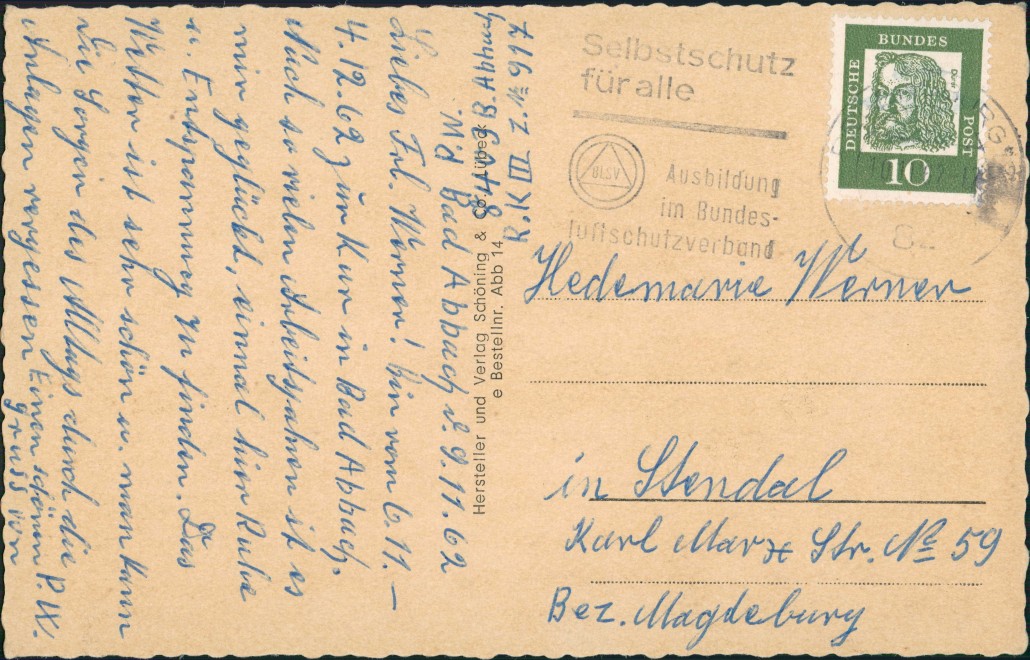 Md Bad Abbach d. 9.11.62
Liebes Frl. Werner! bin vom 6.11.–
4.12.62 zur Kur in Bad Abbach.
Nach so vielen Arbeitsjahren ist es
mir geglückt, einmal hier Ruhe
u. Entspannung zu finden. Das
Wetter ist sehr schön u. man kann
die Sorgen des Alltags durch die
Anlagen vergessen Einen schönen
Gruss von R. W.
R.K III Z. No 917
Hersteller und Verlag Schöning & Co., Lübeck
Bestellnr. Abb 14
Selbstschutz
für alle
BLSV
Ausbildung
im Bundes-
luftschutzverband
DEUTSCHE
BUNDES
POST
Dürer
10
Hedemarie Werner
in Stendal
Karl Marx Str. No 59
Bez. Magdeburg